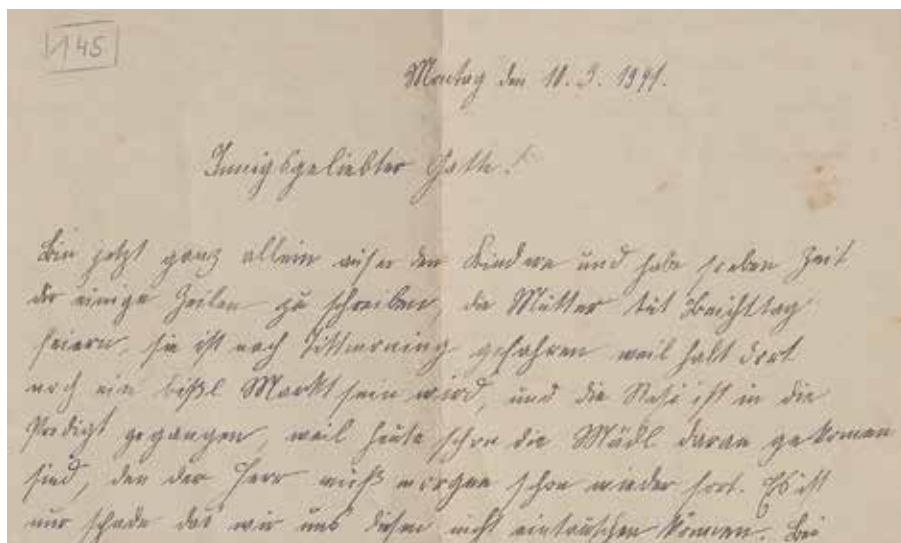 145
Montag den 10. 3. 1941.
Innigsgeliebter Gatte!
Bin jetzt ganz allein außer den Kindern und habe soeben Zeit
dir einige Zeilen zu schreiben, die Mutter tut Beichttag
feiern, sie ist nach Tittmoning gefahren weil halt dort
noch ein bißl Markt sein wird, und die Resi ist in die
Predigt gegangen, weil heute schon die Mädl daran gekomen
sind, den der Herr muß morgen schon wieder fort. Es ist
nur schade das wir uns diesen nicht eintauschen können. Bei